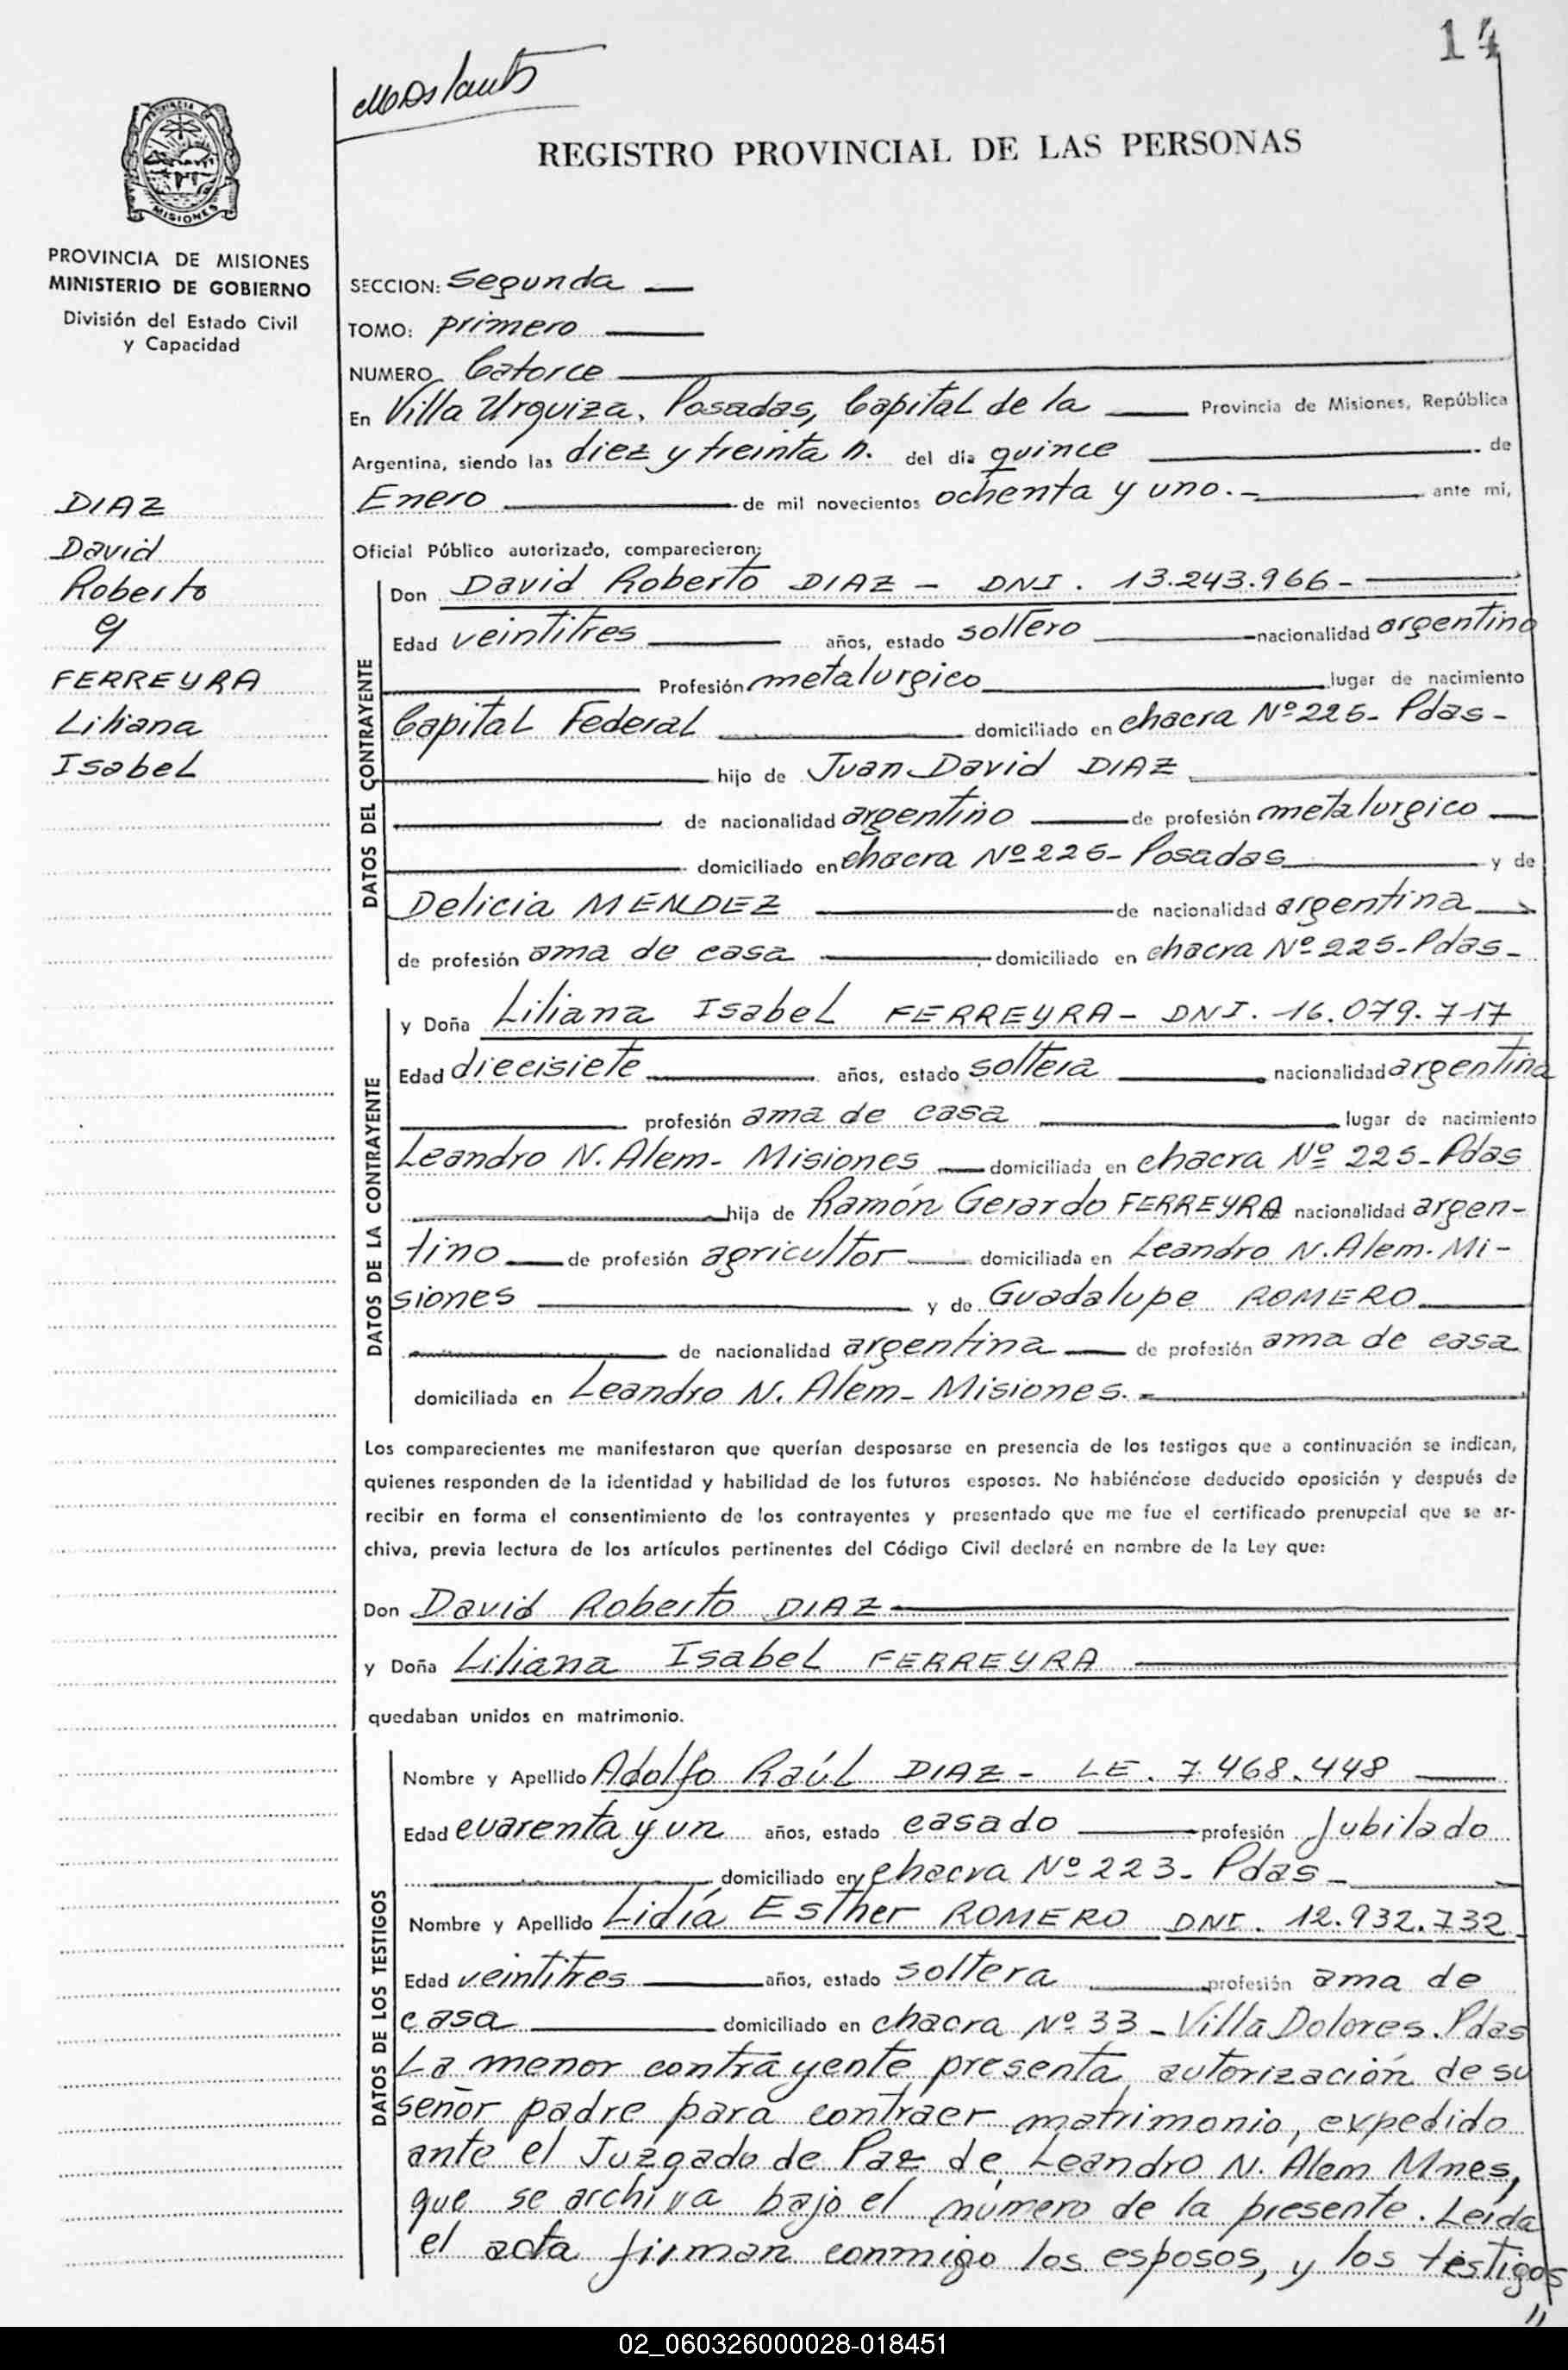 14
REGISTRO PROVINCIAL DE LAS PERSONAS
PROVINCIA
MISIONES
PROVINCIA DE MISIONES
MINISTERIO DE GOBIERNO
División del Estado Civil
y Capacidad
DIAZ
David
Roberto
y
FERREYRA
Liliana
Isabel
SECCION: Segunda —
TOMO: primero —
NUMERO Catorce —
En Villa Urquiza, Posadas, Capital de la — Provincia de Misiones, República
Argentina, siendo las diez y treinta h. del día quince — de
Enero — de mil novecientos ochenta y uno.- — ante mi,
Oficial Público autorizado, comparecieron:
DATOS DEL CONTRAYENTE
Don David Roberto DIAZ - DNI. 13.243.966- —
Edad veintitres — años, estado soltero — nacionalidad argentino
— Profesión metalurgico — lugar de nacimiento
Capital Federal — domiciliado en chacra Nº 225- Pdas-
— hijo de Juan David DIAZ —
— de nacionalidad argentino — de profesión metalurgico —
— domiciliado en chacra Nº 225- Posadas — y de
Delicia MENDEZ — de nacionalidad argentina —
de profesión ama de casa — domiciliado en chacra Nº 225- Pdas-
DATOS DE LA CONTRAYENTE
y Doña Liliana Isabel FERREYRA- DNI. 16.079.717
Edad diecisiete — años, estado soltera — nacionalidad argentina
— profesión ama de casa — lugar de nacimiento
Leandro N. Alem- Misiones — domiciliada en chacra Nº 225- Pdas
— hija de Ramón Gerardo FERREYRA nacionalidad argen-
tino — de profesión agricultor — domiciliada en Leandro N. Alem- Mi-
siones — y de Guadalupe ROMERO —
— de nacionalidad argentina — de profesión ama de casa
domiciliada en Leandro N. Alem- Misiones.- —
Los comparecientes me manifestaron que querían desposarse en presencia de los testigos que a continuación se indican,
quienes responden de la identidad y habilidad de los futuros esposos. No habiéndose deducido oposición y después de
recibir en forma el consentimiento de los contrayentes y presentado que me fue el certificado prenupcial que se ar-
chiva, previa lectura de los artículos pertinentes del Código Civil declaré en nombre de la Ley que:
Don David Roberto DIAZ —
y Doña Liliana Isabel FERREYRA —
quedaban unidos en matrimonio.
DATOS DE LOS TESTIGOS
Nombre y Apellido Adolfo Raúl DIAZ- LE. 7.468.448 —
Edad cuarenta y un años, estado casado — profesión Jubilado
— domiciliado en chacra Nº 223- Pdas- —
Nombre y Apellido Lidía Esther ROMERO DNI. 12.932.732
Edad veintitres — años, estado soltera — profesión ama de
casa — domiciliado en chacra Nº 33 - Villa Dolores. Pdas
La menor contrayente presenta autorización de su
señor padre para contraer matrimonio, expedido
ante el Juzgado de Paz de Leandro N. Alem Mnes,
que se archiva bajo el número de la presente. Leída
el acta firman conmigo los esposos, y los testigos
//
02_060326000028-018451